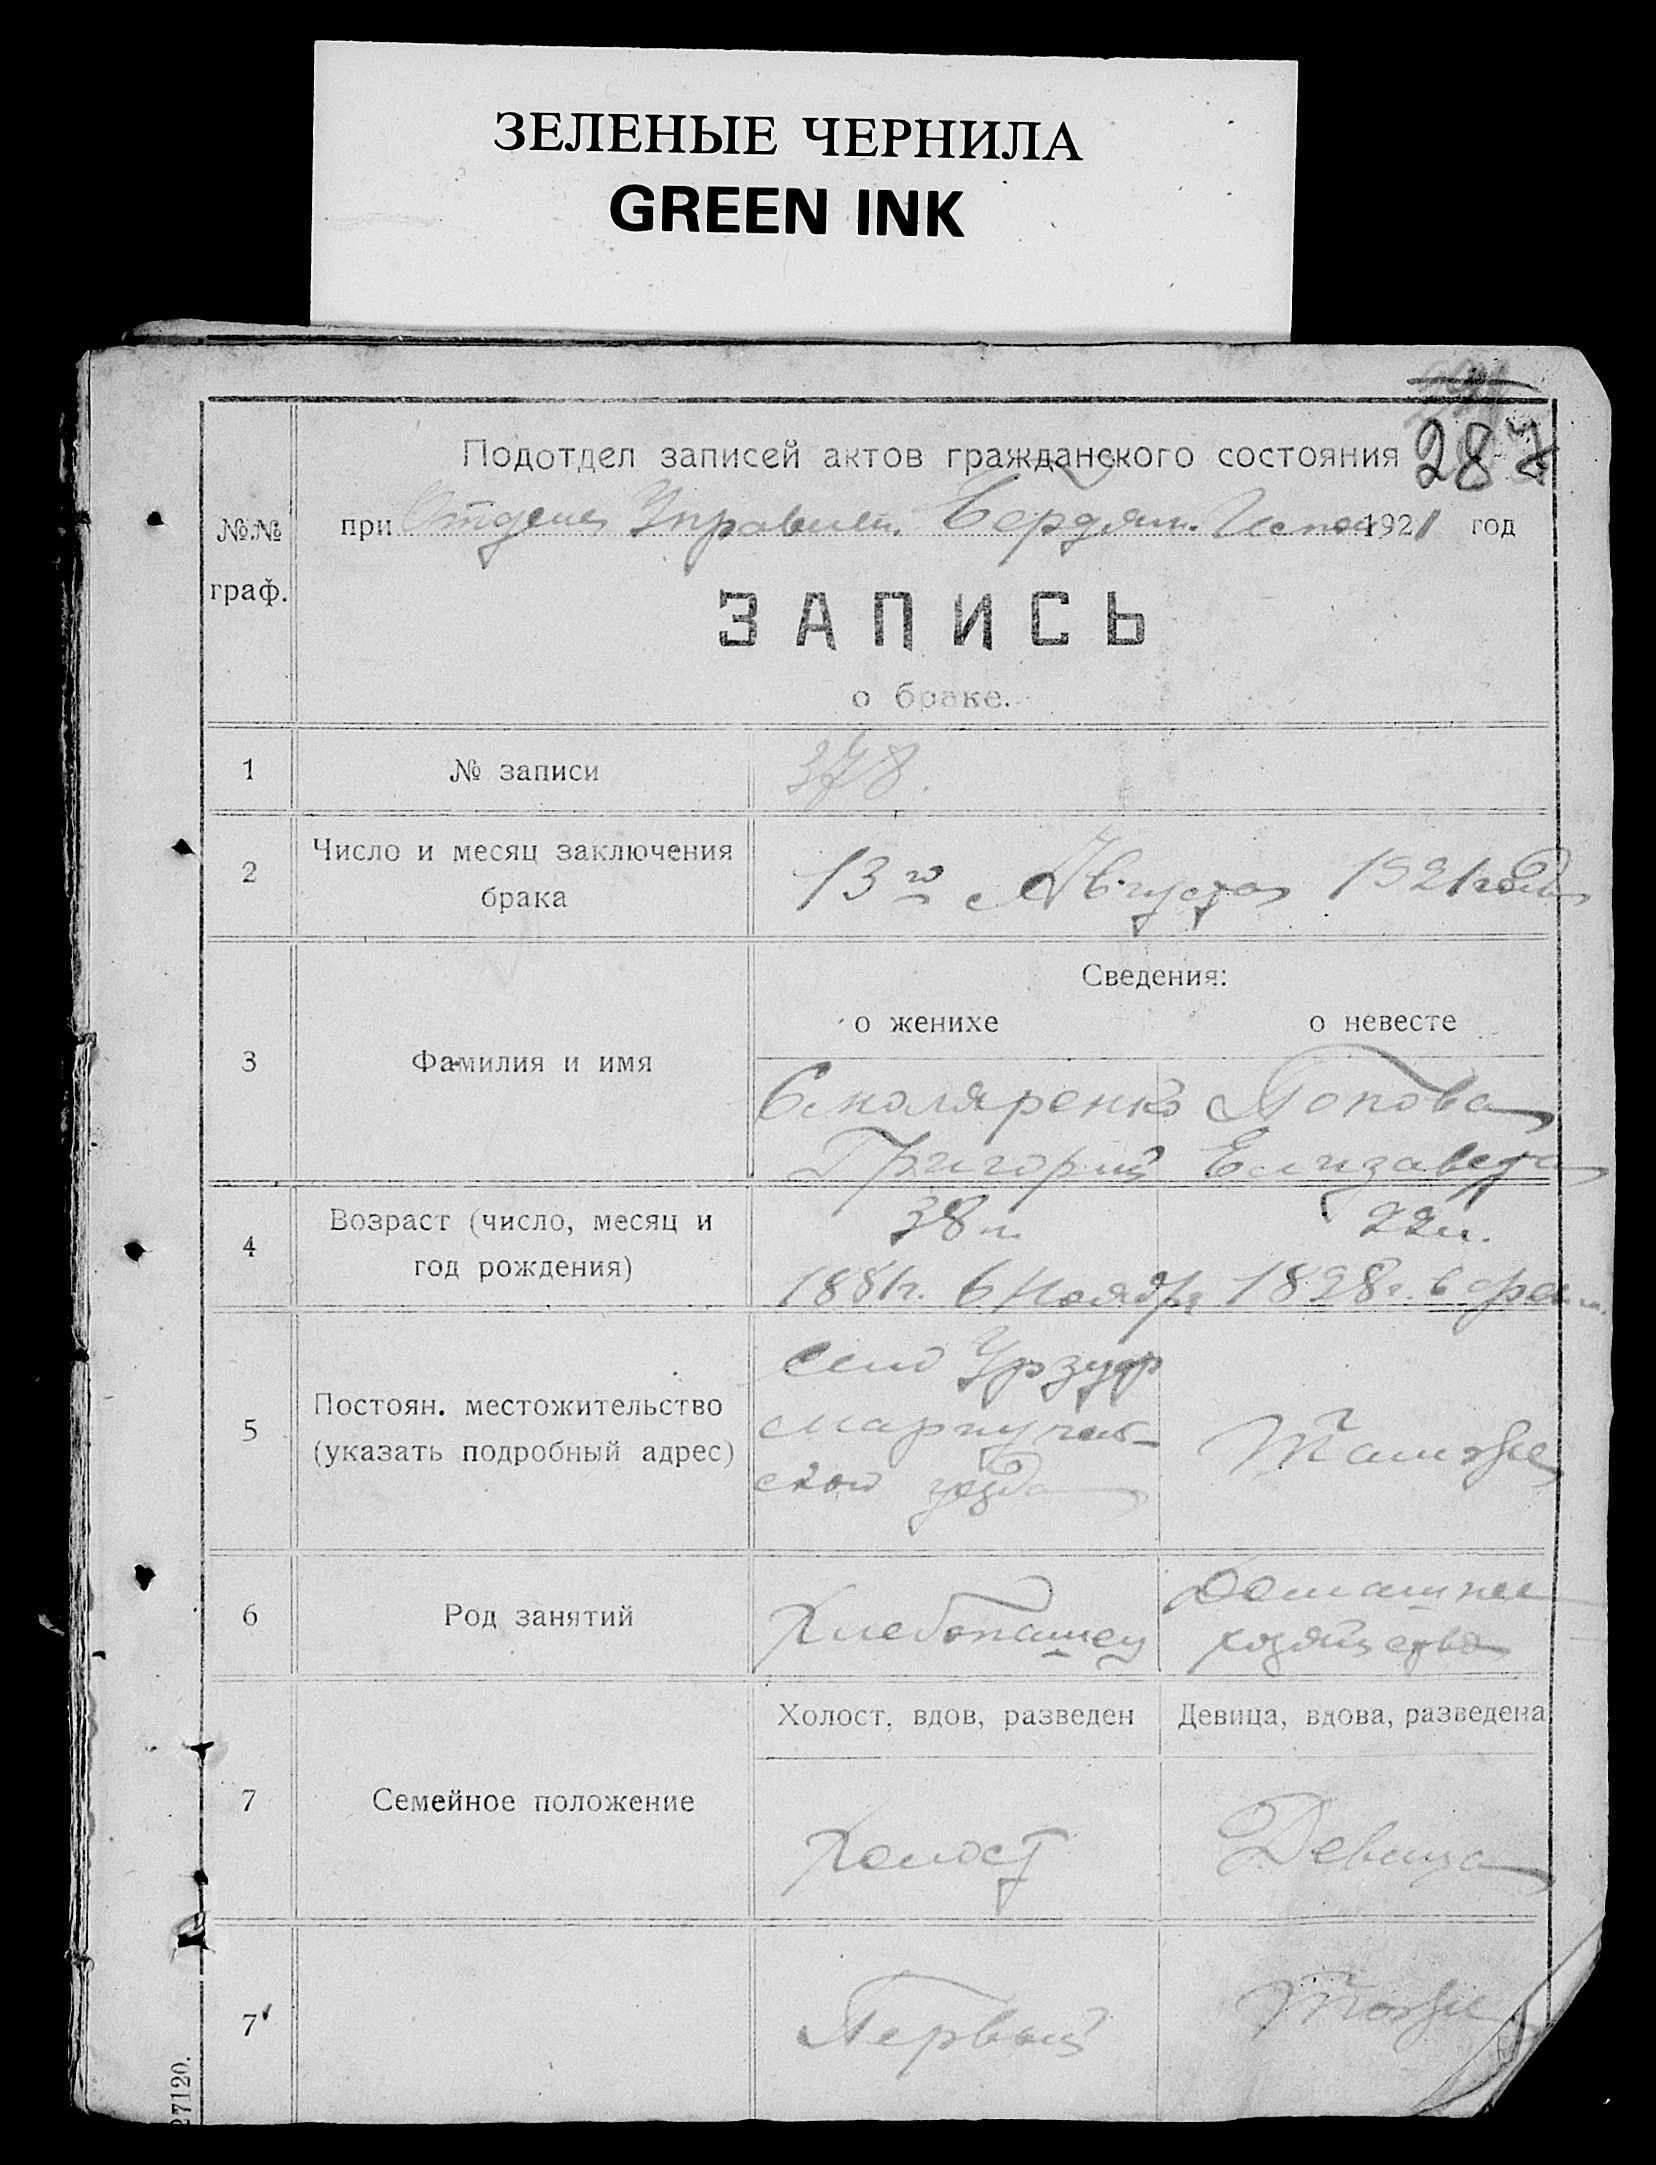 ЗЕЛЕНЫЕ ЧЕРНИЛА
GREEN INK
287
Подотдел записей актов гражданского состояния
№№ граф.
при Отделе Управлен. Бердян. Испол 1921 год
ЗАПИСЬ
о браке.
1 № записи 378.
2 Число и месяц заключения брака
13го Августа 1921 года
Сведения:
о женихе о невесте
3 Фамилия и имя
Смоляренко Попова
Григорий Елизавета
4 Возраст (число, месяц и год рождения)
38 л. 22 л.
1881г. 6 Ноября 1898г. в
5 Постоян. местожительство (указать подробный адрес)
село Урзуф
Мариуполь-
ской уезда
Таможе
6 Род занятий
Хлебопашец
Домашнее
хозяйство
Холост, вдов, разведен Девица, вдова, разведена
7 Семейное положение
Холост Девица
7' Первый Тоже
27120.